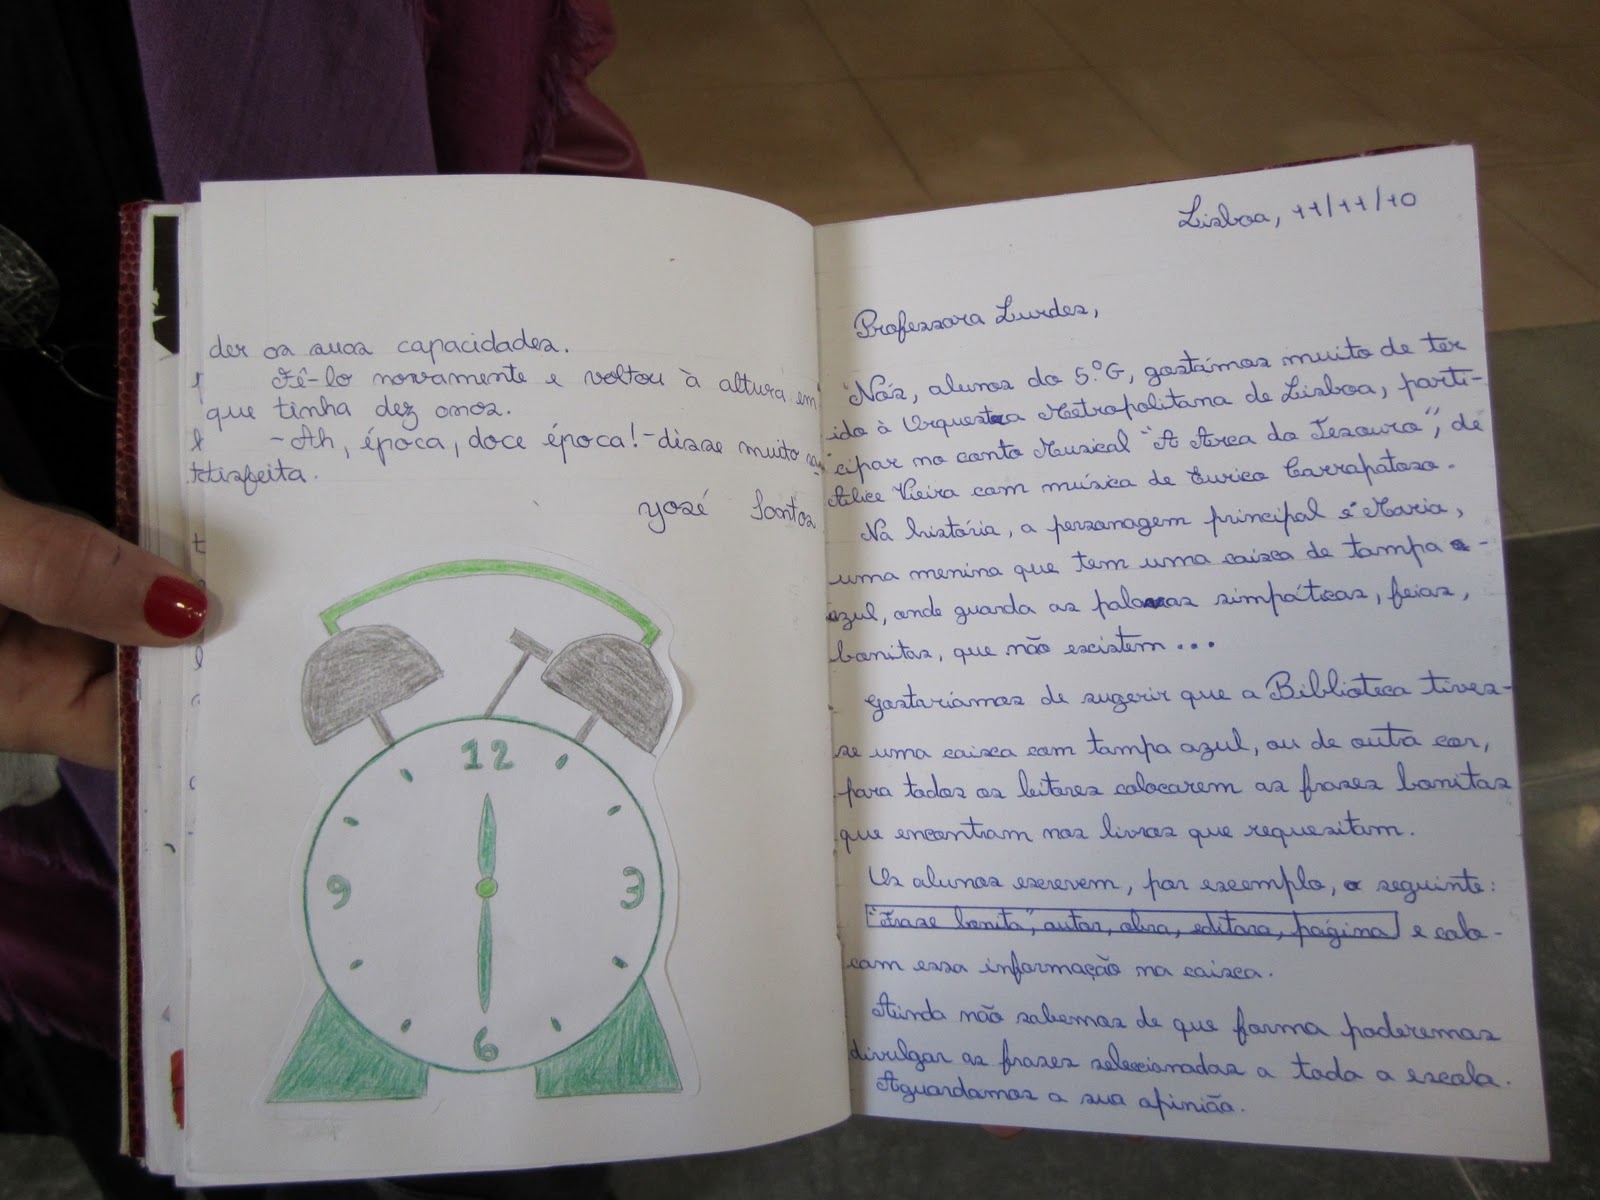 der as suas capacidades.
Fê-lo novamente e voltou à altura em
que tinha dez anos.
-Ah, época, doce época!-disse muito sa
tisfeita.
José Santos
12
9
3
6
Lisboa, 11/11/10
Professora Lurdes,
Nós, alunos do 5.ºG, gostámos muito de ter
ido à Orquestra Metropolitana de Lisboa, parti-
cipar no conto Musical "A Arca do Tesouro", de
Alice Vieira com música de Eurico Carrapatoso.
Na história, a personagem principal é Maria,
uma menina que tem uma caixa de tampa
azul, onde guarda as palavras simpáticas, feias,
bonitas, que não existem...
Gostaríamos de sugerir que a Biblioteca tives-
se uma caixa com tampa azul, ou de outra cor,
para todos os leitores colocarem as frases bonitas
que encontram nos livros que requesitam.
Os alunos escrevem, por exemplo, o seguinte:
"Frase bonita", autor, obra, editora, página e colo-
cam essa informação na caixa.
Ainda não sabemos de que forma poderemos
divulgar as frases seleccionadas a toda a escola.
Aguardamos a sua opinião.